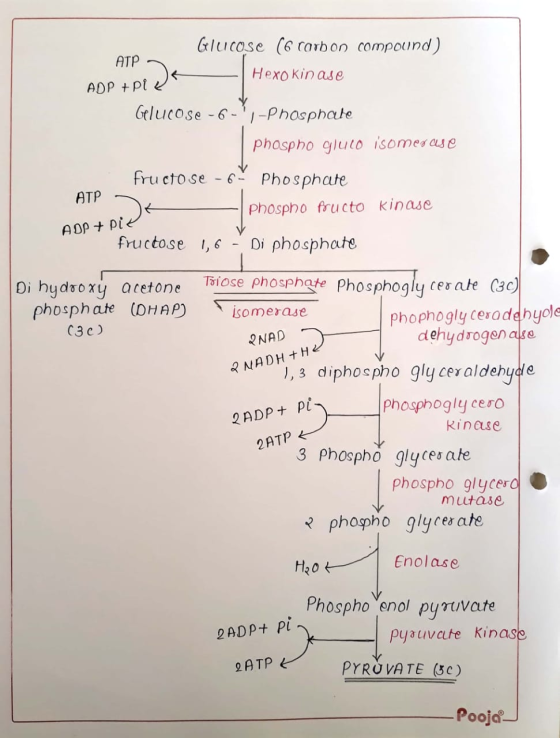 Glucose (6 carbon compound)
ATP
ADP + Pi
Hexokinase
Gelucose - 6 - 1 - Phosphate
phospho gluco isomerase
fructose - 6 - Phosphate
ATP
ADP + Pi
phospho fructo kinase
fructose 1,6 - Di phosphate
Di hydroxy acetone
phosphate (DHAP)
(3c)
Triose phosphate
isomerase
Phosphoglycerate (3c)
phophoglyceradehyde
dehydrogenase
2NAD
2 NADH + H
1,3 diphospho glyceraldehyde
2ADP + Pi
2ATP
phosphoglycero
kinase
3 Phospho glycerate
phospho glycero
mutase
2 phospho glycerate
H2O
Enolase
Phospho enol pyruvate
2ADP + Pi
2ATP
pyruvate kinase
PYRUVATE (3c)
Pooja®